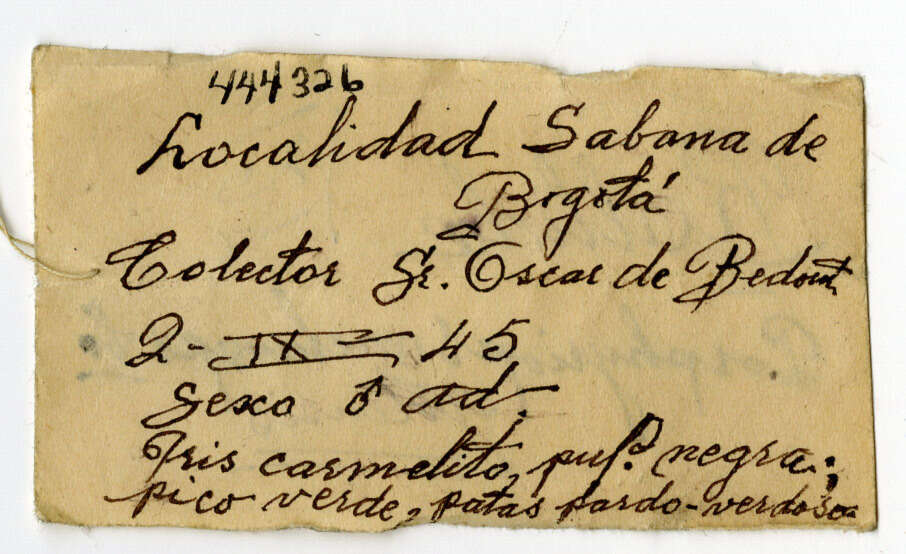 444326
Localidad Sabana de
Bogotá
Colector Sr. Oscar de Bedout
2-IX-45
Sexo ♂ ad.
Iris carmelito, pup.ª negra;
pico verde, patas pardo-verdosas